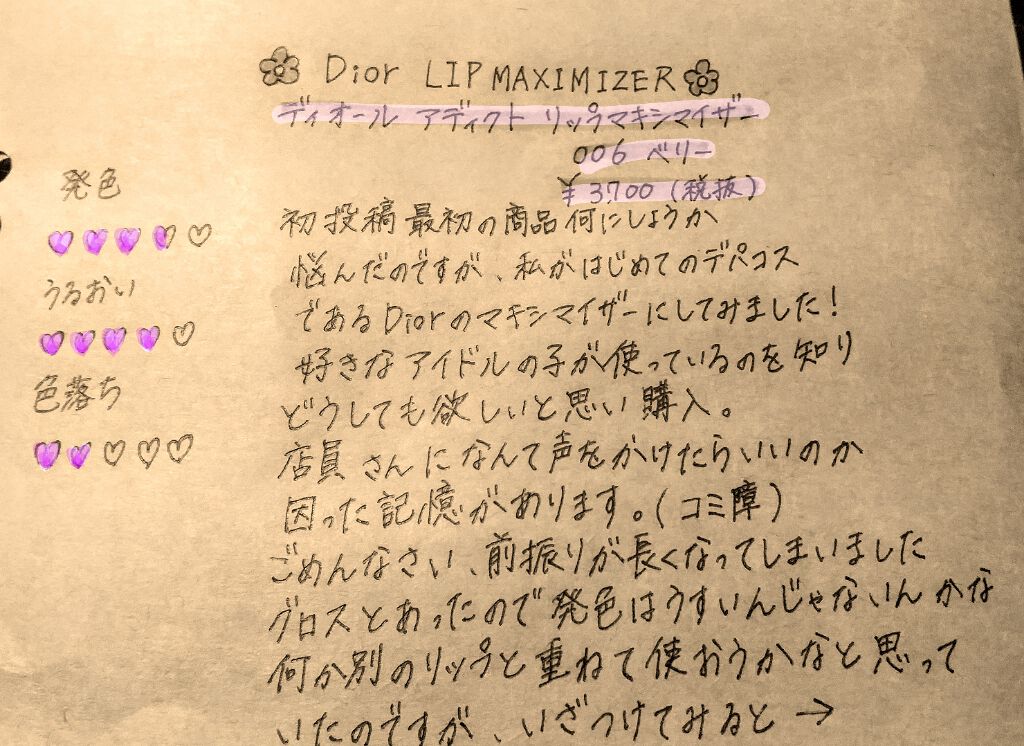 Dior LIP MAXIMIZER
ディオール アディクト リップマキシマイザー
006 ベリー
¥3,700 (税抜)
発色
うるおい
色落ち
初投稿 最初の商品何にしようか
悩んだのですが、私がはじめてのデパコス
であるDiorのマキシマイザーにしてみました!
好きなアイドルの子が使っているのを知り
どうしても欲しいと思い購入。
店員さんになんて声をかけたらいいのか
困った記憶があります。(コミ障)
ごめんなさい、前振りが長くなってしまいました
グロスとあったので発色はうすいんじゃないんかな
何か別のリップと重ねて使おうかなと思って
いたのですが、いざつけてみると→